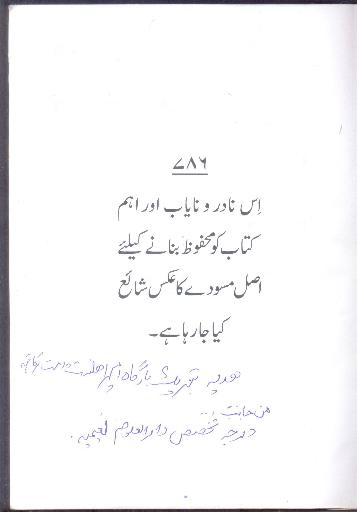 ۷۸۶
اِس نادر و نایاب اور اہم
کتاب کو محفوظ بنانے کیلئے
اصل مسودے کا عکس شائع
کیا جا رہا ہے۔
ھدیہ بارگاہ
من جانب
درجہ تخصص دارالعلوم نعیمیہ